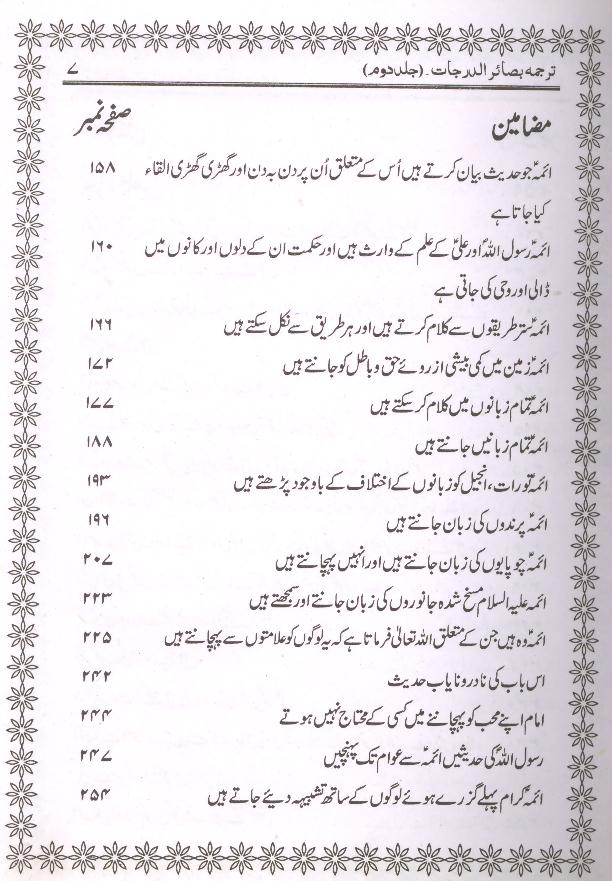 ترجمہ بصائر الدرجات۔ (جلد دوم) ۷
مضامین صفحہ نمبر
ائمہؑ جو حدیث بیان کرتے ہیں اُس کے متعلق اُن پر دن بہ دن اور گھڑی گھڑی القاء ۱۵۸
کیا جاتا ہے
ائمہؑ رسول اللہؐ اور علیؑ کے علم کے وارث ہیں اور حکمت ان کے دلوں اور کانوں میں ۱۶۰
ڈالی اور وحی کی جاتی ہے
ائمہؑ ستر طریقوں سے کلام کرتے ہیں اور ہر طریق سے نکل سکتے ہیں ۱۶۶
ائمہؑ زمین میں کمی بیشی از روئے حق و باطل کو جانتے ہیں ۱۷۲
ائمہؑ تمام زبانوں میں کلام کر سکتے ہیں ۱۷۷
ائمہؑ تمام زبانیں جانتے ہیں ۱۸۸
ائمہؑ تورات، انجیل کو زبانوں کے اختلاف کے باوجود پڑھتے ہیں ۱۹۳
ائمہؑ پرندوں کی زبان جانتے ہیں ۱۹۶
ائمہؑ چوپایوں کی زبان جانتے ہیں اور انہیں پہچانتے ہیں ۲۰۷
ائمہ علیہ السلام مسخ شدہ جانوروں کی زبان جانتے اور سمجھتے ہیں ۲۲۳
ائمہؑ وہ ہیں جن کے متعلق اللہ تعالیٰ فرماتا ہے کہ یہ لوگوں کو علامتوں سے پہچانتے ہیں ۲۲۵
اس باب کی نادر و نایاب حدیث ۲۴۲
امام اپنے محب کو پہچاننے میں کسی کے محتاج نہیں ہوتے ۲۴۴
رسول اللہؐ کی حدیثیں ائمہؑ سے عوام تک پہنچیں ۲۴۷
ائمہؑ کرام پہلے گزرے ہوئے لوگوں کے ساتھ تشبیہہ دیئے جاتے ہیں ۲۵۴